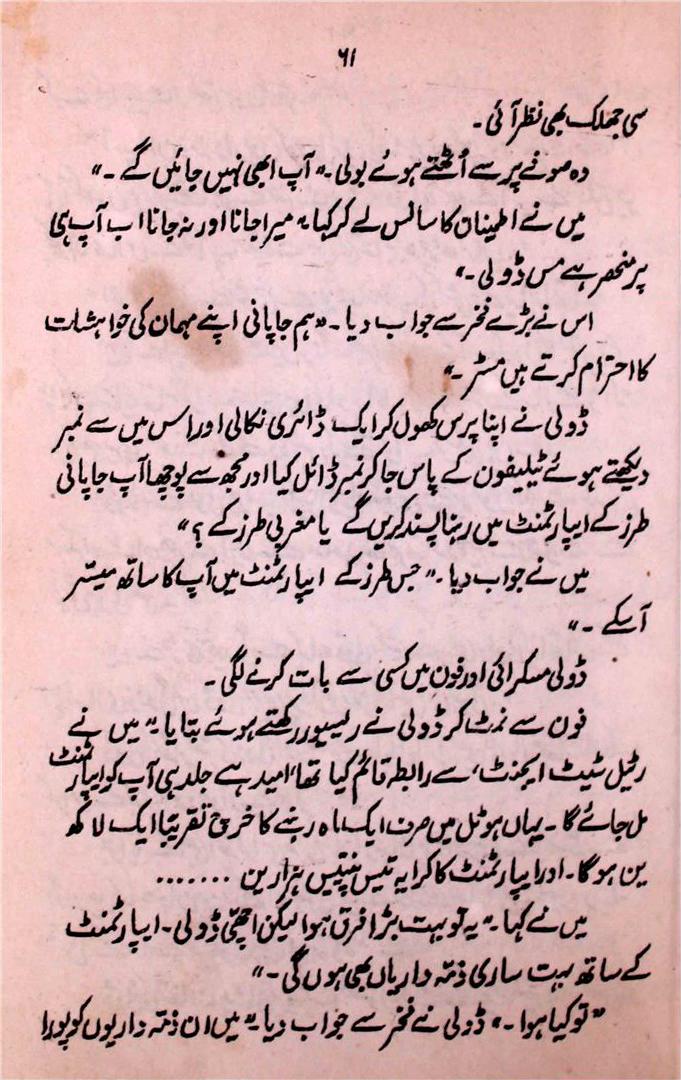 ۶۱
سی جھلک بھی نظر آئی ۔
وہ صوفے پر سے اُٹھتے ہوئے بولی ۔" آپ ابھی نہیں جائیں گے ۔"
میں نے اطمینان کا سانس لے کر کہا " میرا جانا اور نہ جانا اب آپ ہی
پر منحصر ہے مس ڈولی ۔"
اس نے بڑے فخر سے جواب دیا ۔" ہم جاپانی اپنے مہمان کی خواہشات
کا احترام کرتے ہیں مسٹر ۔"
ڈولی نے اپنا پرس کھول کر ایک ڈائری نکالی اور اس میں سے نمبر
دیکھتے ہوئے ٹیلیفون کے پاس جا کر نمبر ڈائل کیا اور مجھ سے پوچھا آپ جاپانی
طرز کے اپارٹمنٹ میں رہنا پسند کریں گے یا مغربی طرز کے ؟"
میں نے جواب دیا ۔" جس طرز کے اپارٹمنٹ میں آپ کا ساتھ میسّر
آسکے ۔"
ڈولی مسکرائی اور فون میں کسی سے بات کرنے لگی ۔
فون سے نمٹ کر ڈولی نے ریسیور رکھتے ہوئے بتایا " میں نے
رئیل سٹیٹ ایجنٹ، سے رابطہ قائم کیا تھا، امید ہے جلد ہی آپ کو اپارٹمنٹ
مل جائے گا ۔ یہاں ہوٹل میں صرف ایک ماہ رہنے کا خرچ تقریباً ایک لاکھ
ین ہوگا ۔ اور اپارٹمنٹ کا کرایہ تیس پنتیس ہزار ین .......
میں نے کہا ۔" یہ تو بہت بڑا فرق ہوا لیکن اچھّی ڈولی ۔ اپارٹمنٹ
کے ساتھ بہت ساری ذمّہ داریاں بھی ہوں گی ۔"
" تو کیا ہوا ۔" ڈولی نے فخر سے جواب دیا " میں ان ذمّہ داریوں کو پورا